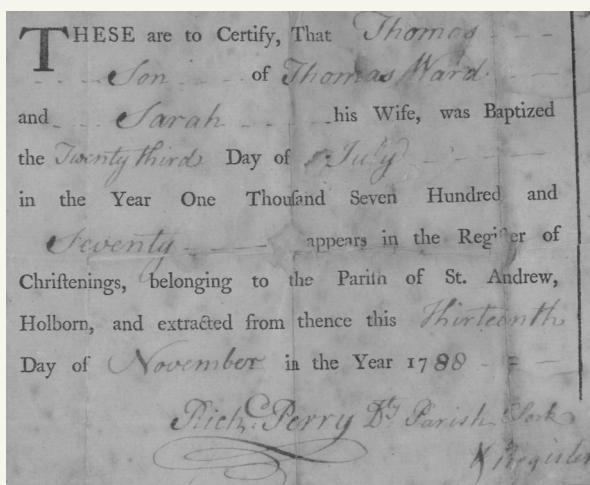 THESE are to Certify, That Thomas
Son of Thomas Ward
and Sarah his Wife, was Baptized
the Twenty third Day of July
in the Year One Thouſand Seven Hundred and
Seventy appears in the Regiſter of
Chriſtenings, belonging to the Pariſh of St. Andrew,
Holborn, and extracted from thence this Thirteenth
Day of November in the Year 1788
Richd. Perry Dy Parish Clerk
& Register